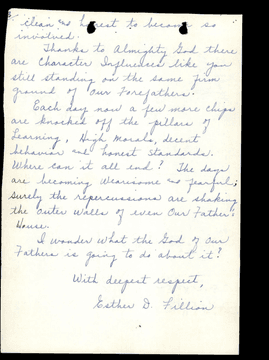 clean and honest to become so
involved.
Thanks to Almighty God there
are Character Influences like you
still standing on the same firm
ground of our Forefathers.
Each day now a few more chips
are knocked off the pillars of
Learning, High Morals, decent
behavior and honest standards.
Where can it all end? The days
are becoming wearisome and fearful;
surely the repercussions are shaking
the Outer Walls of even Our Father's
House.
I wonder what the God of Our
Fathers is going to do about it?
With deepest respect,
Esther D. Fillion